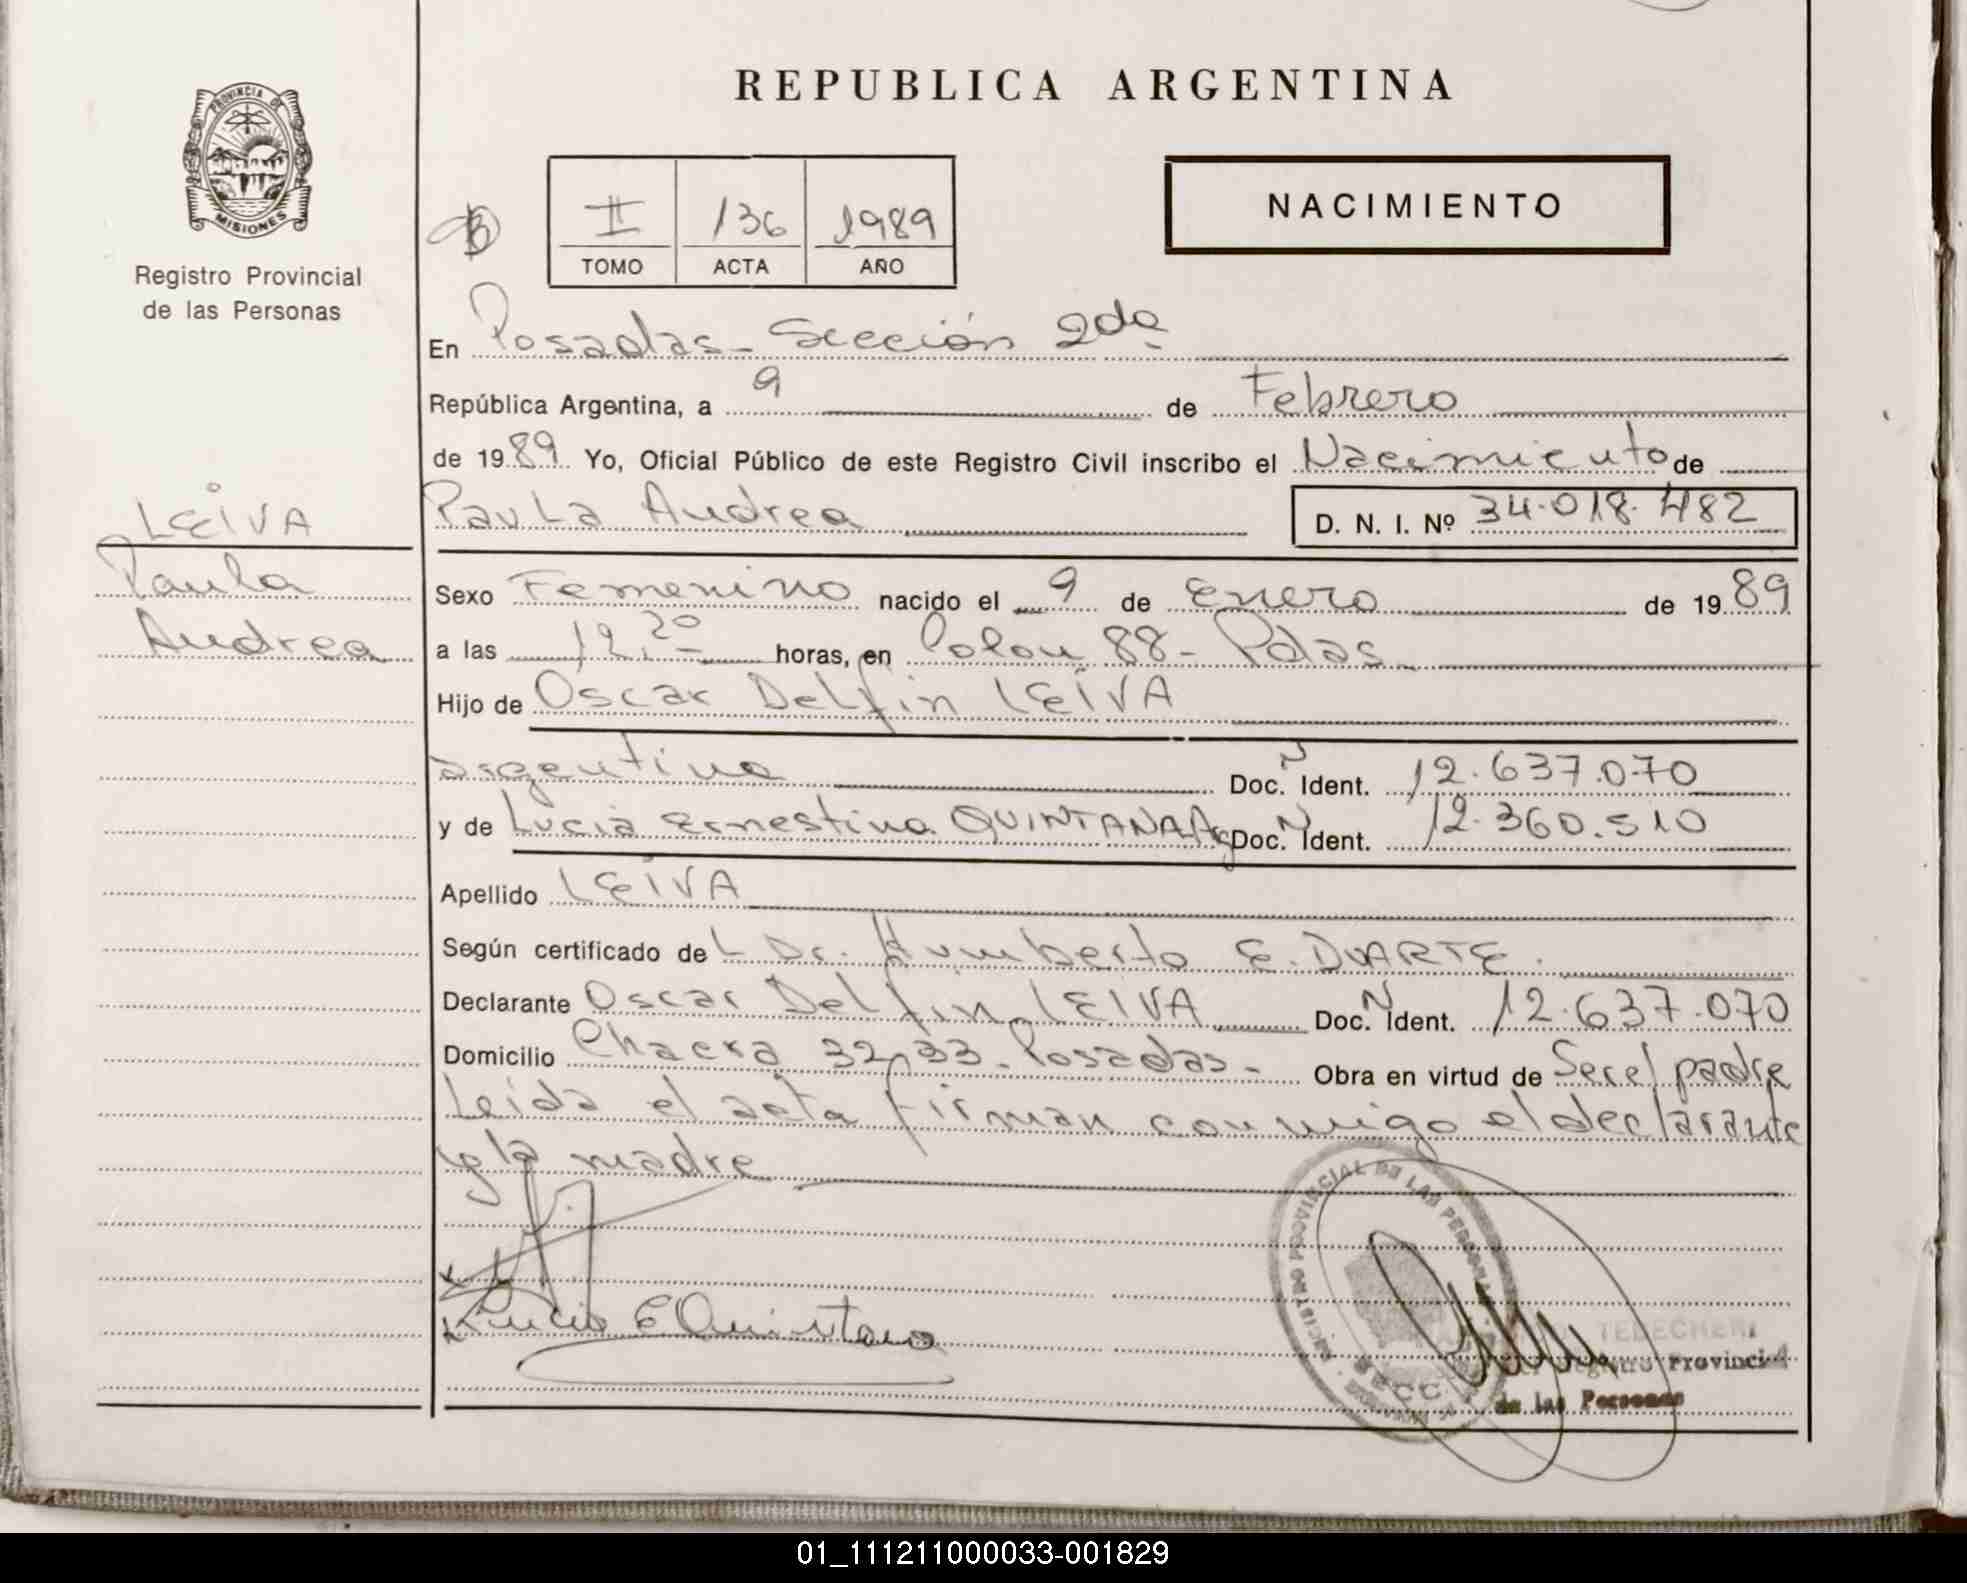 REPUBLICA ARGENTINA
PROVINCIA DE
MISIONES
Registro Provincial
de las Personas
II 136 1989
TOMO ACTA AÑO
NACIMIENTO
En Posadas - Sección 2da
República Argentina, a 9 de Febrero
de 1989 Yo, Oficial Público de este Registro Civil inscribo el Nacimiento de
Paula Andrea D. N. I. Nº 34.018.482
LEIVA
Paula
Andrea
Sexo Femenino nacido el 9 de Enero de 1989
a las horas, en Colon 88 - Pdas
Hijo de Oscar Delfin LEIVA
argentino Doc. N Ident. 12.637.070
y de Lucia Ernestina QUINTANA Arg Doc. N Ident. 12.360.510
Apellido LEIVA
Según certificado del Dr. Humberto E. DUARTE.
Declarante Oscar Delfin LEIVA Doc. N Ident. 12.637.070
Domicilio Chacra 32, 33 - Posadas - Obra en virtud de Ser el padre
Leida el acta firman conmigo el declarante
y la madre
Lucia E Quintana
REGISTRO PROVINCIAL DE LAS PERSONAS
Provincial
de las Personas
01_111211000033-001829